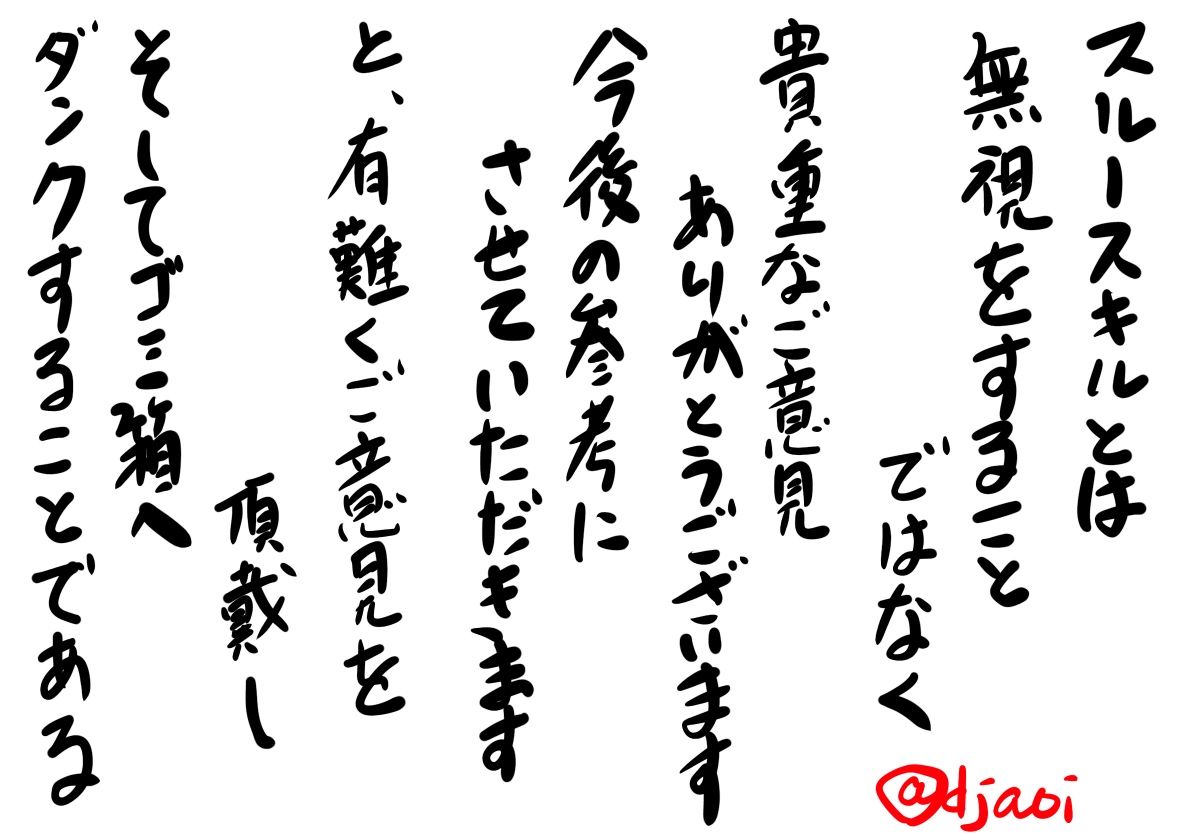 スルースキルとは
無視をすること
ではなく
貴重なご意見
ありがとうございます
今後の参考に
させていただきます
と、有難くご意見を
頂戴し
そしてゴミ箱へ
ダンクすることである
@djaoi